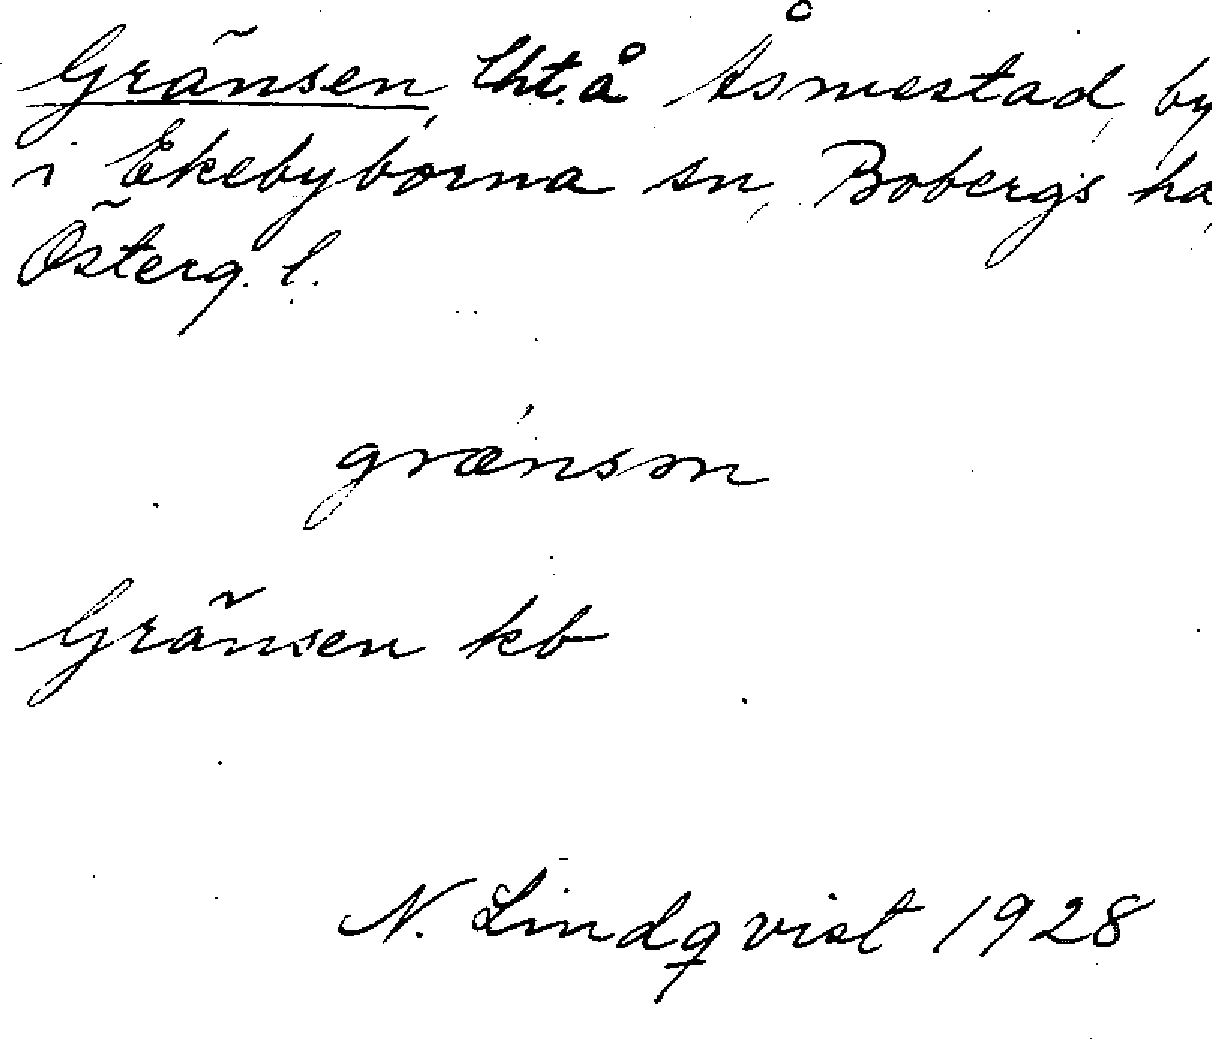 Gränsen, lht. å Åsmestad, by
i Ekebyborna sn, Bobergs hd,
Österg. l.
grænsən
Gränsen kb
N. Lindqvist 1928